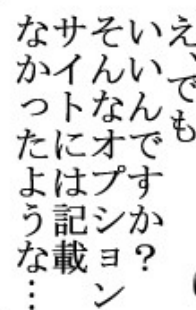 え、でも
いいんですか？
そんなオプション
サイトには記載
なかったような…